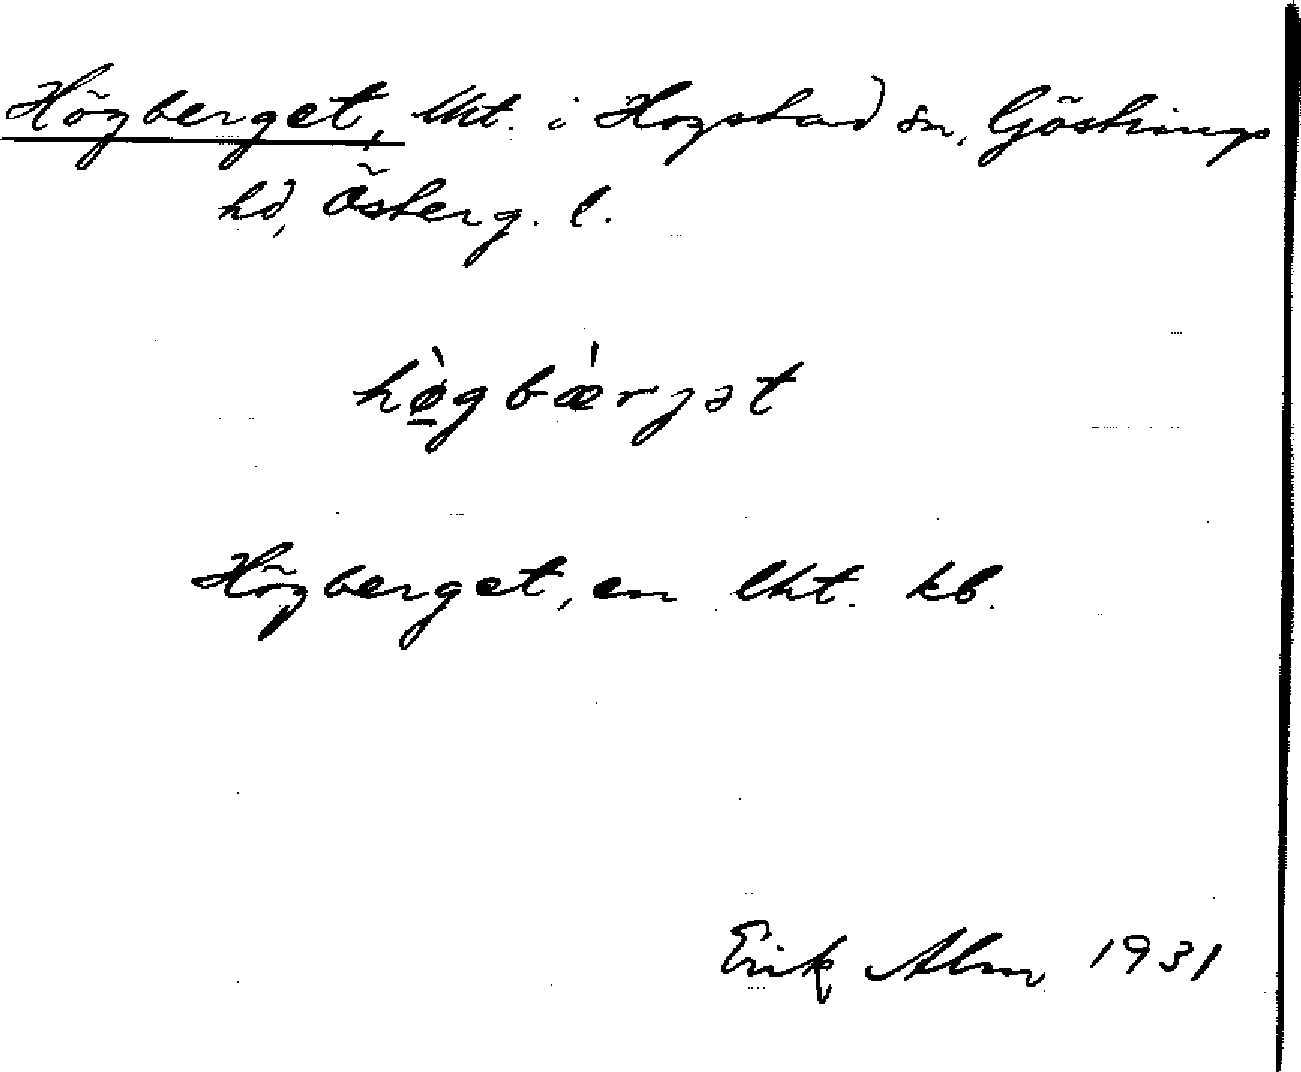 Högberget, lht. i Hogstad sn, Göstrings
hd, Österg. l.
hø̀gbǽrjət
Högberget, en lht. kb.
Erik Alm 1931